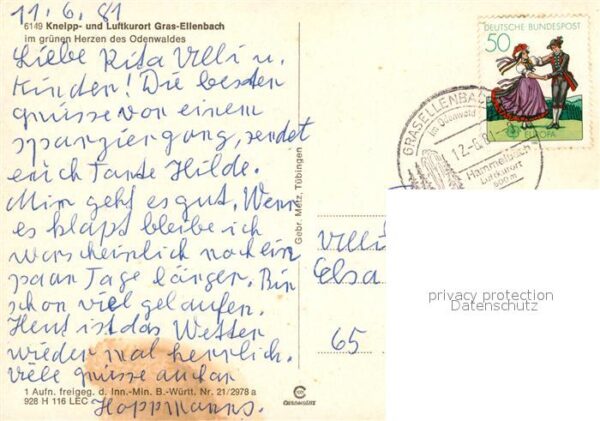 11.6.81
6149 Kneipp- und Luftkurort Gras-Ellenbach
im grünen Herzen des Odenwaldes
Liebe Rita Villi u.
Kinder! Die besten
grüsse von einem
spanziergang, sendet
euch Tante Hilde.
Mir geht es gut. Wenn
es klapt bleibe ich
warscheinlich noch ein
paar Tage länger. Bin
schon viel gelaufen.
Heut ist das Wetter
wieder mal herrlich.
Viele grüsse an
Hoppmanns.
1 Aufn. freigeg. d. Inn.-Min. B.-Württ. Nr. 21/2978 a
928 H 116 LEC
Gebr. Metz, Tübingen
DEUTSCHE BUNDESPOST
50
EUROPA
GRASELLENBACH
im Odenwald
12.-6.81
Hammelbach
Luftkurort
Villi
Elsa
65
privacy protection
Datenschutz